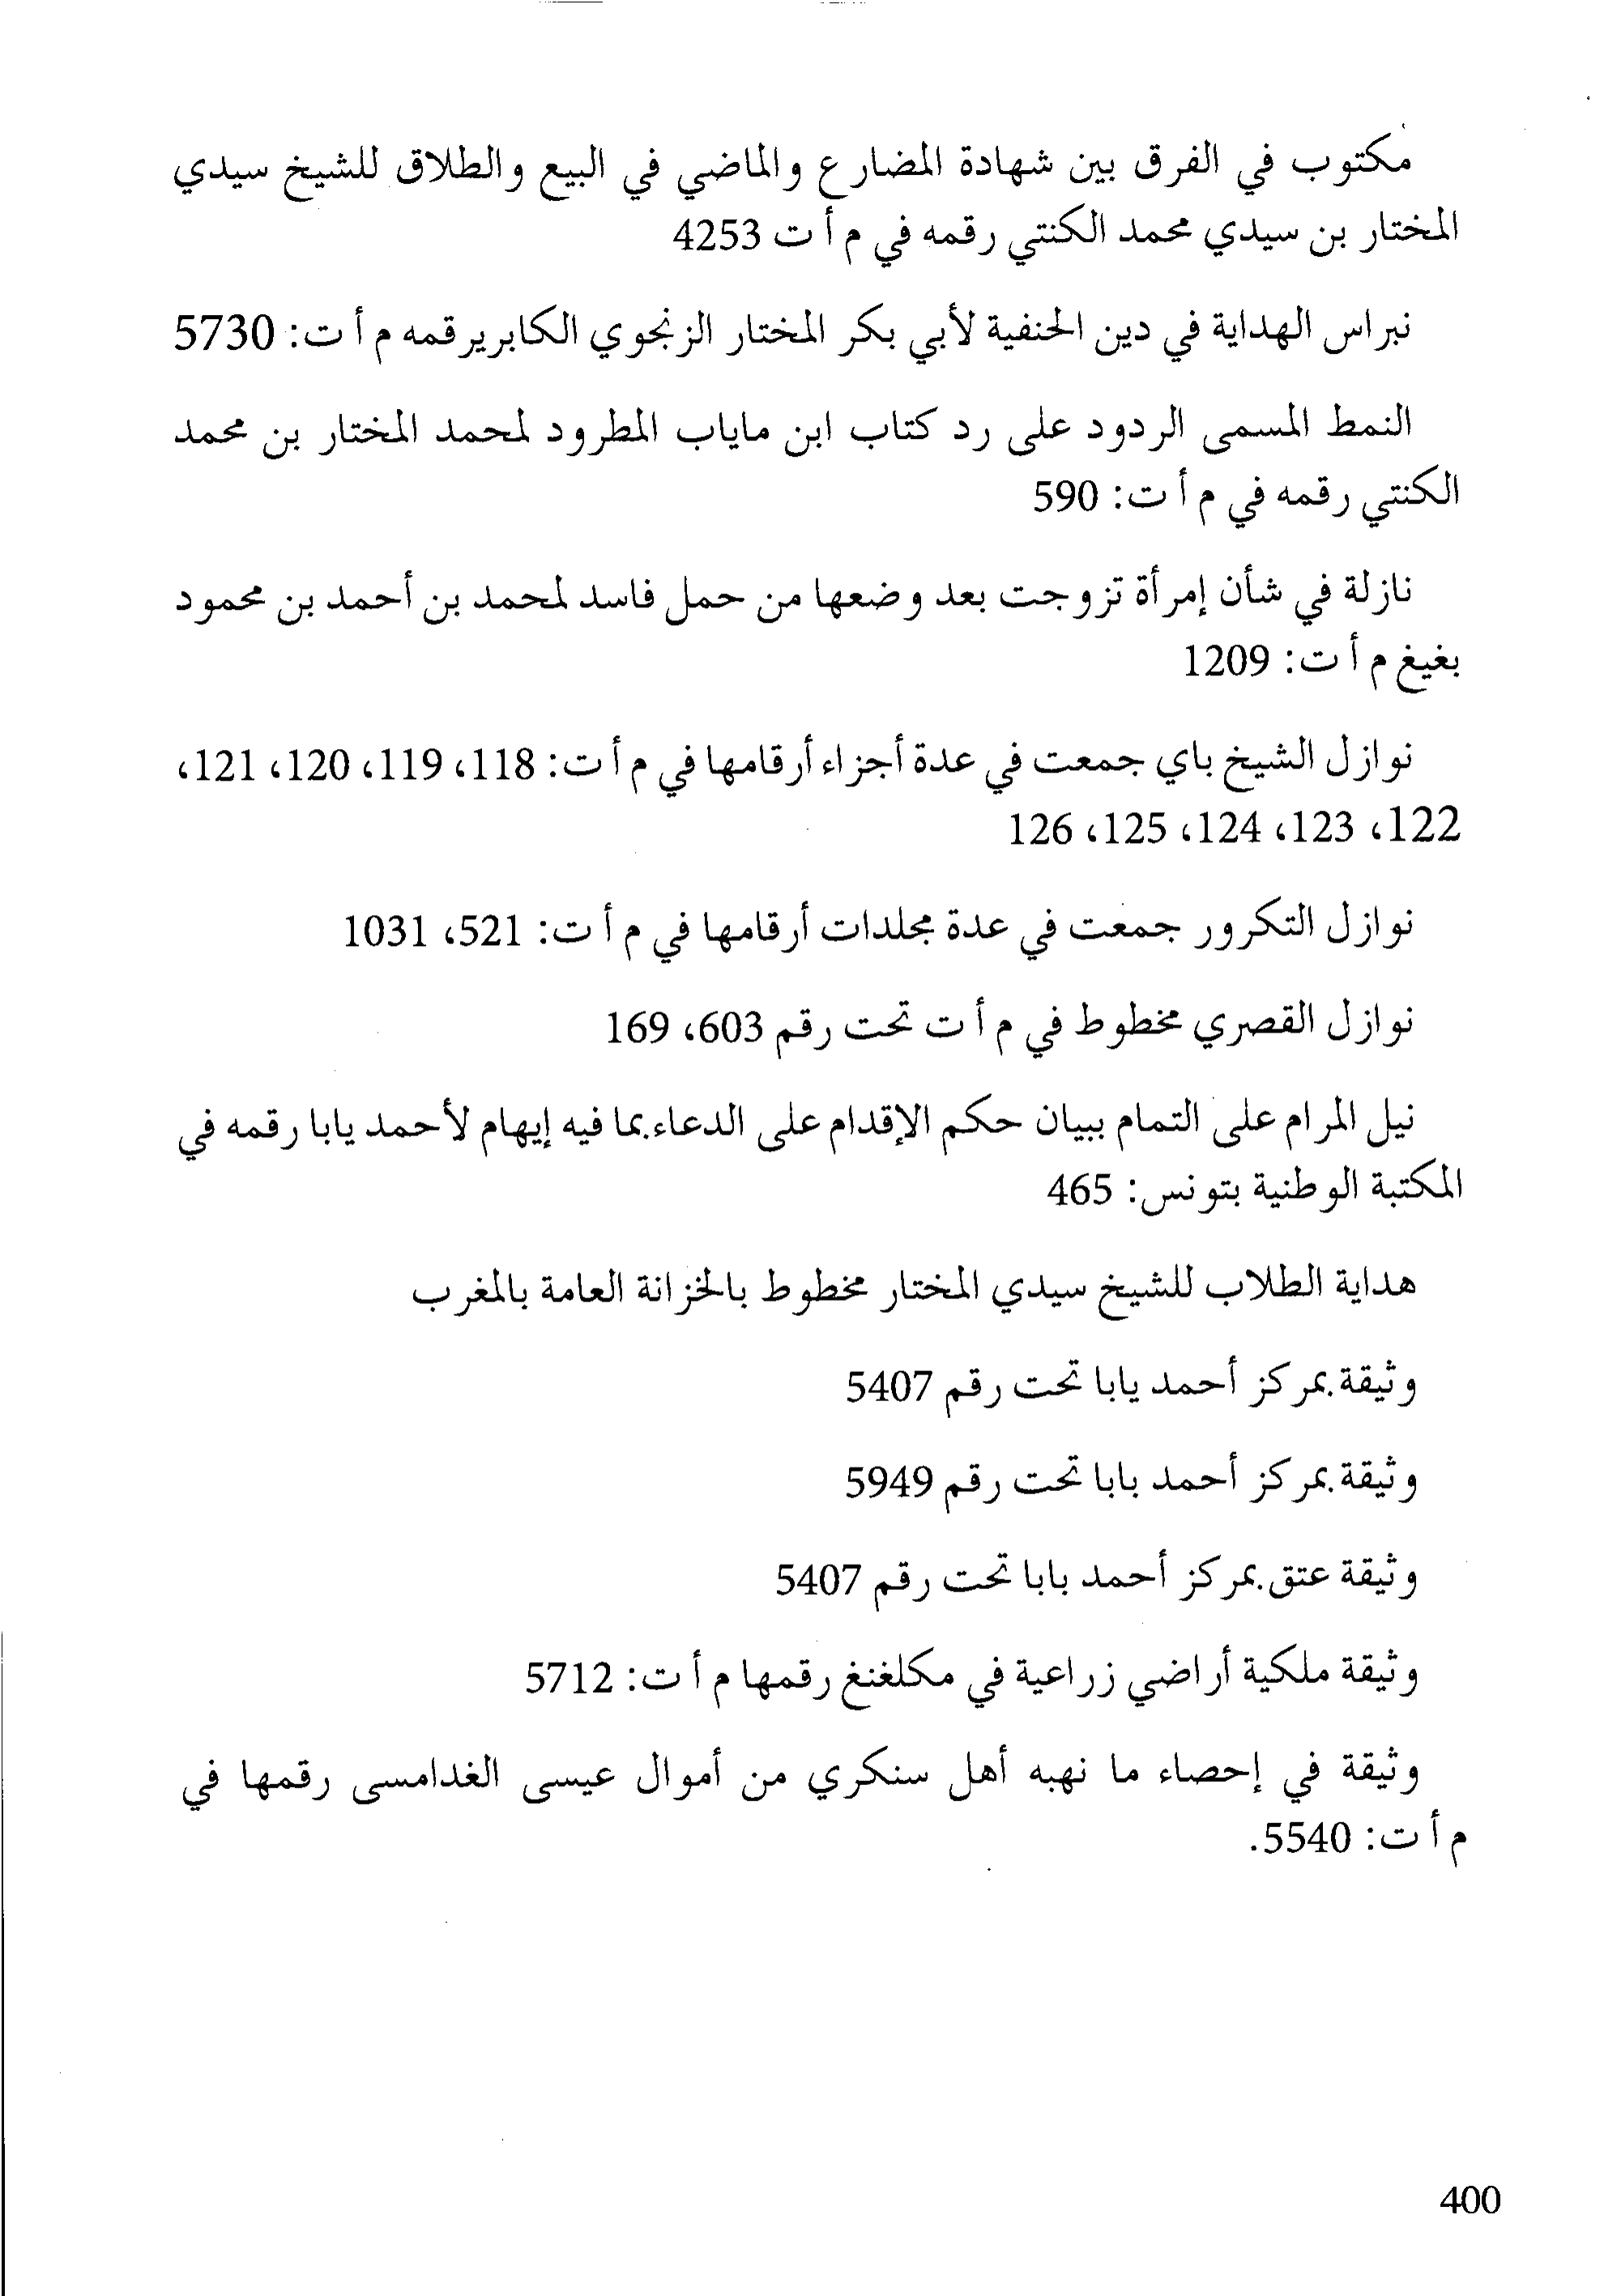 مكتوب في الفرق بين شهادة المضارع والماضي في البيع والطلاق للشيخ سيدي
المختار بن سيدي محمد الكنتي رقمه في م أ ت 4253
نبراس الهداية في دين الحنفية لأبي بكر المختار الزنجوي الكابريرقمه م أ ت: 5730
النمط المسمى الردود على رد كتاب ابن ماياب المطرود لمحمد المختار بن محمد
الكنتي رقمه في م أ ت: 590
نازلة في شأن إمرأة تزوجت بعد وضعها من حمل فاسد لمحمد بن أحمد بن محمود
بغيغ م أ ت: 1209
نوازل الشيخ باي جمعت في عدة أجزاء أرقامها في م أ ت: 118، 119، 120، 121،
122، 123، 124، 125، 126
نوازل التكرور جمعت في عدة مجلدات أرقامها في م أ ت: 521، 1031
نوازل القصري مخطوط في م أ ت تحت رقم 603، 169
نيل المرام على التمام ببيان حكم الإقدام على الدعاء.بما فيه إيهام لأحمد يابا رقمه في
المكتبة الوطنية بتونس: 465
هداية الطلاب للشيخ سيدي المختار مخطوط بالخزانة العامة بالمغرب
وثيقة.بمركز أحمد يابا تحت رقم 5407
وثيقة.بمركز أحمد بابا تحت رقم 5949
وثيقة عتق.بمركز أحمد بابا تحت رقم 5407
وثيقة ملكية أراضي زراعية في مكلغنغ رقمها م أ ت: 5712
وثيقة في إحصاء ما نهبه أهل سنكري من أموال عيسى الغدامسى رقمها في
م أ ت: 5540.
400